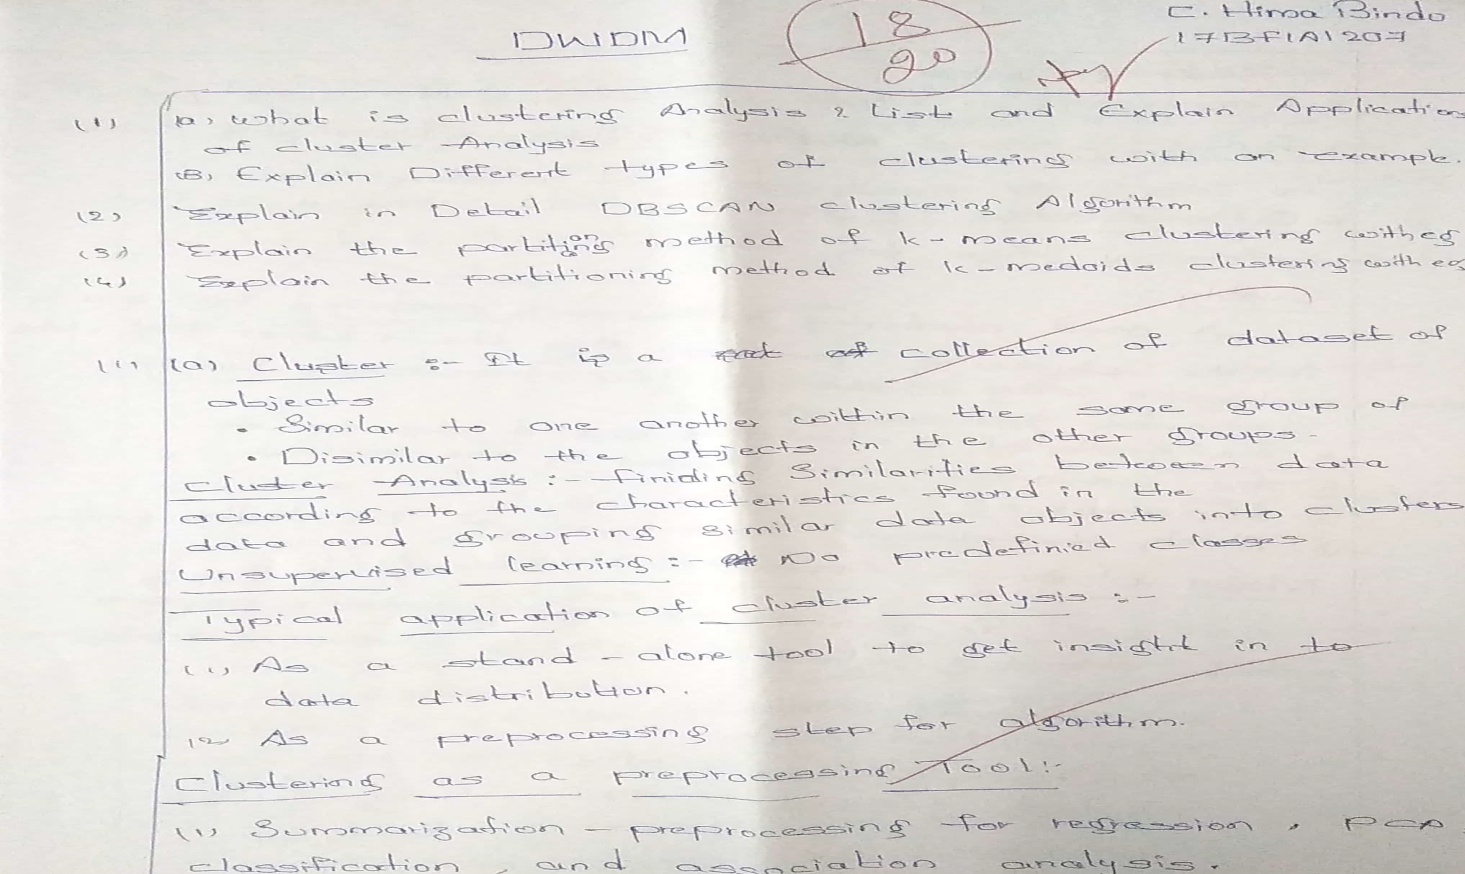 DWDM
18
20
C. Hima Bindu
17BF1A1207
(1) a, what is clustering Analysis & List and Explain Application
of cluster Analysis
(B) Explain Different types of clustering with an Example.
(2) Explain in Detail DBSCAN clustering Algorithm
(3) Explain the partitioning method of k-means clustering with eg
(4) Explain the partitioning method of k-medoids clustering with eg
(1) (a) Cluster :- It is a collection of dataset of
objects
• Similar to one another within the same group of
• Disimilar to the objects in the other groups.
Cluster Analysis :- finiding Similarities between data
according to the characteristics found in the
data and grouping similar data objects into clusters
Unsupervised learning :- No predefinied classes
Typical application of cluster analysis :-
(1) As a stand-alone tool to get insight in to
data distribution.
12 As a preprocessing step for algorithm.
Clustering as a preprocessing Tool:-
(1) Summarization - preprocessing for regression, PCA
classification, and association analysis.